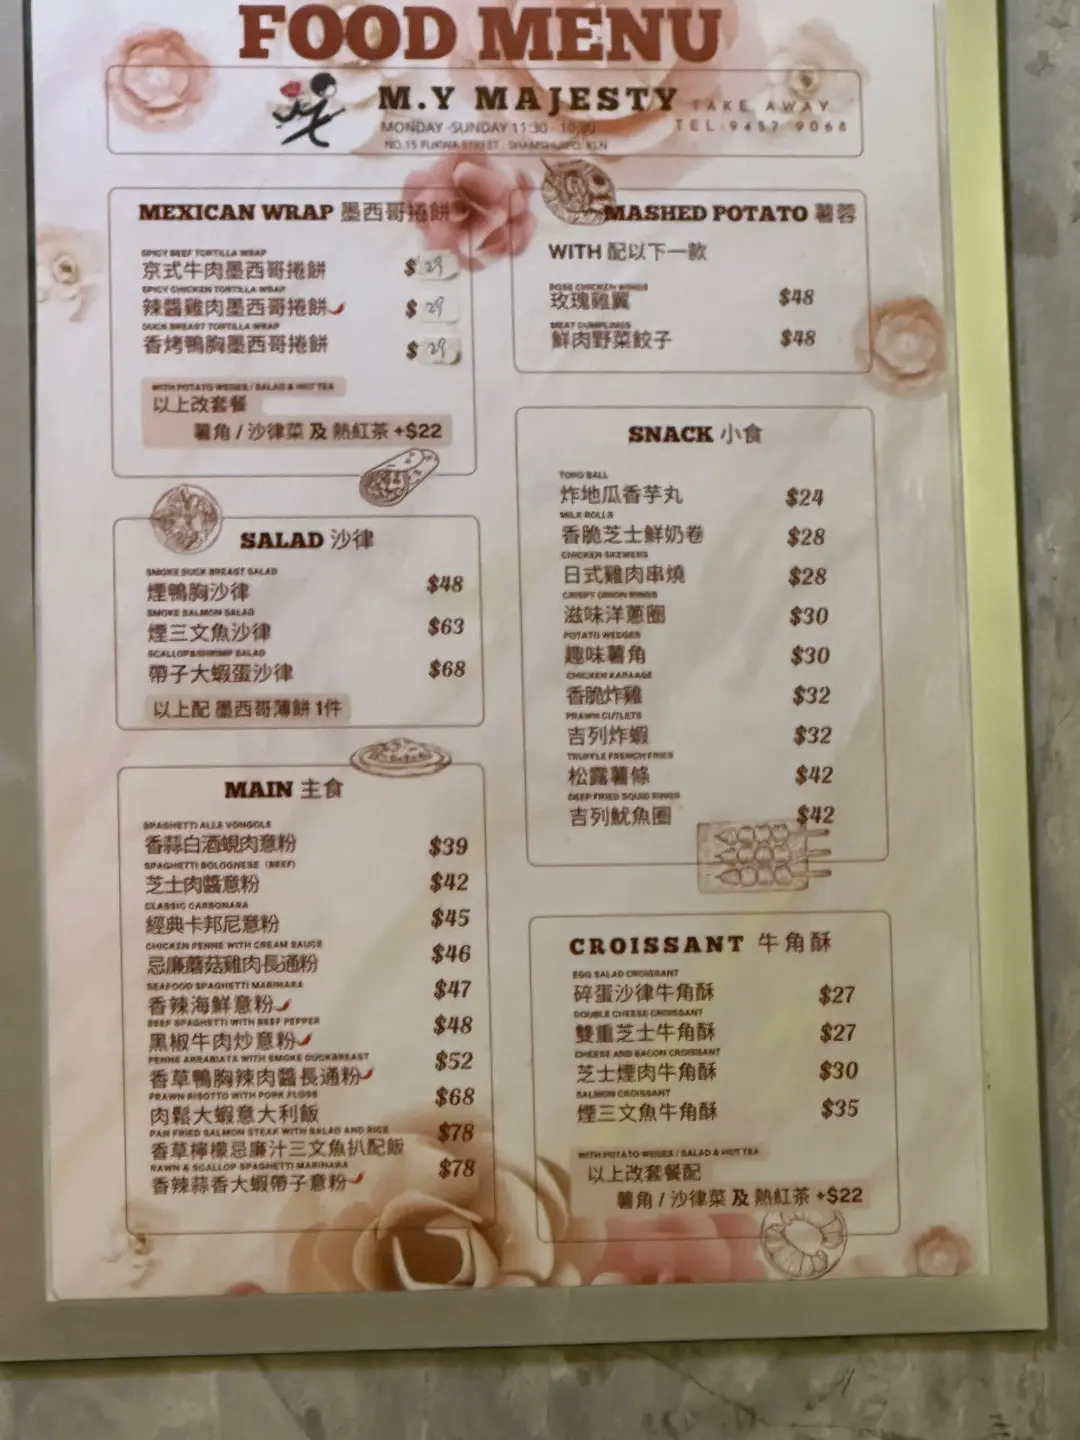 FOOD MENU
M.Y MAJESTY
TAKE AWAY
MONDAY-SUNDAY 11:30 - 10:30
TEL 9457 9068
NO.15 FUKWA STREET, SHAMSHUIPO, KLN
MEXICAN WRAP 墨西哥捲餅
SPICY BEEF TORTILLA WRAP
京式牛肉墨西哥捲餅 $29
SPICY CHICKEN TORTILLA WRAP
辣醬雞肉墨西哥捲餅 $29
DUCK BREAST TORTILLA WRAP
香烤鴨胸墨西哥捲餅 $29
WITH POTATO WEGES / SALAD & HOT TEA
以上改套餐
薯角 / 沙律菜 及 熱紅茶 +$22
SALAD 沙律
SMOKE DUCK BREAST SALAD
煙鴨胸沙律 $48
SMOKE SALMON SALAD
煙三文魚沙律 $63
SCALLOP&SHRIMP SALAD
帶子大蝦蛋沙律 $68
以上配 墨西哥薄餅 1件
MAIN 主食
SPAGHETTI ALLE VONGOLE
香蒜白酒蜆肉意粉 $39
SPAGHETTI BOLOGNESE (BEEF)
芝士肉醬意粉 $42
CLASSIC CARBONARA
經典卡邦尼意粉 $45
CHICKEN PENNE WITH CREAM SAUCE
忌廉蘑菇雞肉長通粉 $46
SEAFOOD SPAGHETTI MARINARA
香辣海鮮意粉 $47
BEEF SPAGHETTI WITH BEEF PEPPER
黑椒牛肉炒意粉 $48
PENNE ARRABIATA WITH SMOKE DUCKBREAST
香草鴨胸辣肉醬長通粉 $52
PRAWN RISOTTO WITH PORK FLOSS
肉鬆大蝦意大利飯 $68
PAN FRIED SALMON STEAK WITH SALAD AND RICE
香草檸檬忌廉汁三文魚扒配飯 $78
RAWN & SCALLOP SPAGHETTI MARINARA
香辣蒜香大蝦帶子意粉 $78
MASHED POTATO 薯蓉
WITH 配以下一款
ROSE CHICKEN WINGS
玫瑰雞翼 $48
MEAT DUMPLINGS
鮮肉野菜餃子 $48
SNACK 小食
TORO BALL
炸地瓜香芋丸 $24
MILK ROLLS
香脆芝士鮮奶卷 $28
CHICKEN SKEWERS
日式雞肉串燒 $28
CRISPY ONION RINGS
滋味洋蔥圈 $30
POTATO WEDGES
趣味薯角 $30
CHICKEN KARAAGE
香脆炸雞 $32
PRAWN CUTLETS
吉列炸蝦 $32
TRUFFLE FRENCH FRIES
松露薯條 $42
DEEP FRIED SQUID RINGS
吉列魷魚圈 $42
CROISSANT 牛角酥
EGG SALAD CROISSANT
碎蛋沙律牛角酥 $27
DOUBLE CHEESE CROISSANT
雙重芝士牛角酥 $27
CHEESE AND BACON CROISSANT
芝士煙肉牛角酥 $30
SALMON CROISSANT
煙三文魚牛角酥 $35
WITH POTATO WEGES / SALAD & HOT TEA
以上改套餐配
薯角 / 沙律菜 及 熱紅茶 +$22